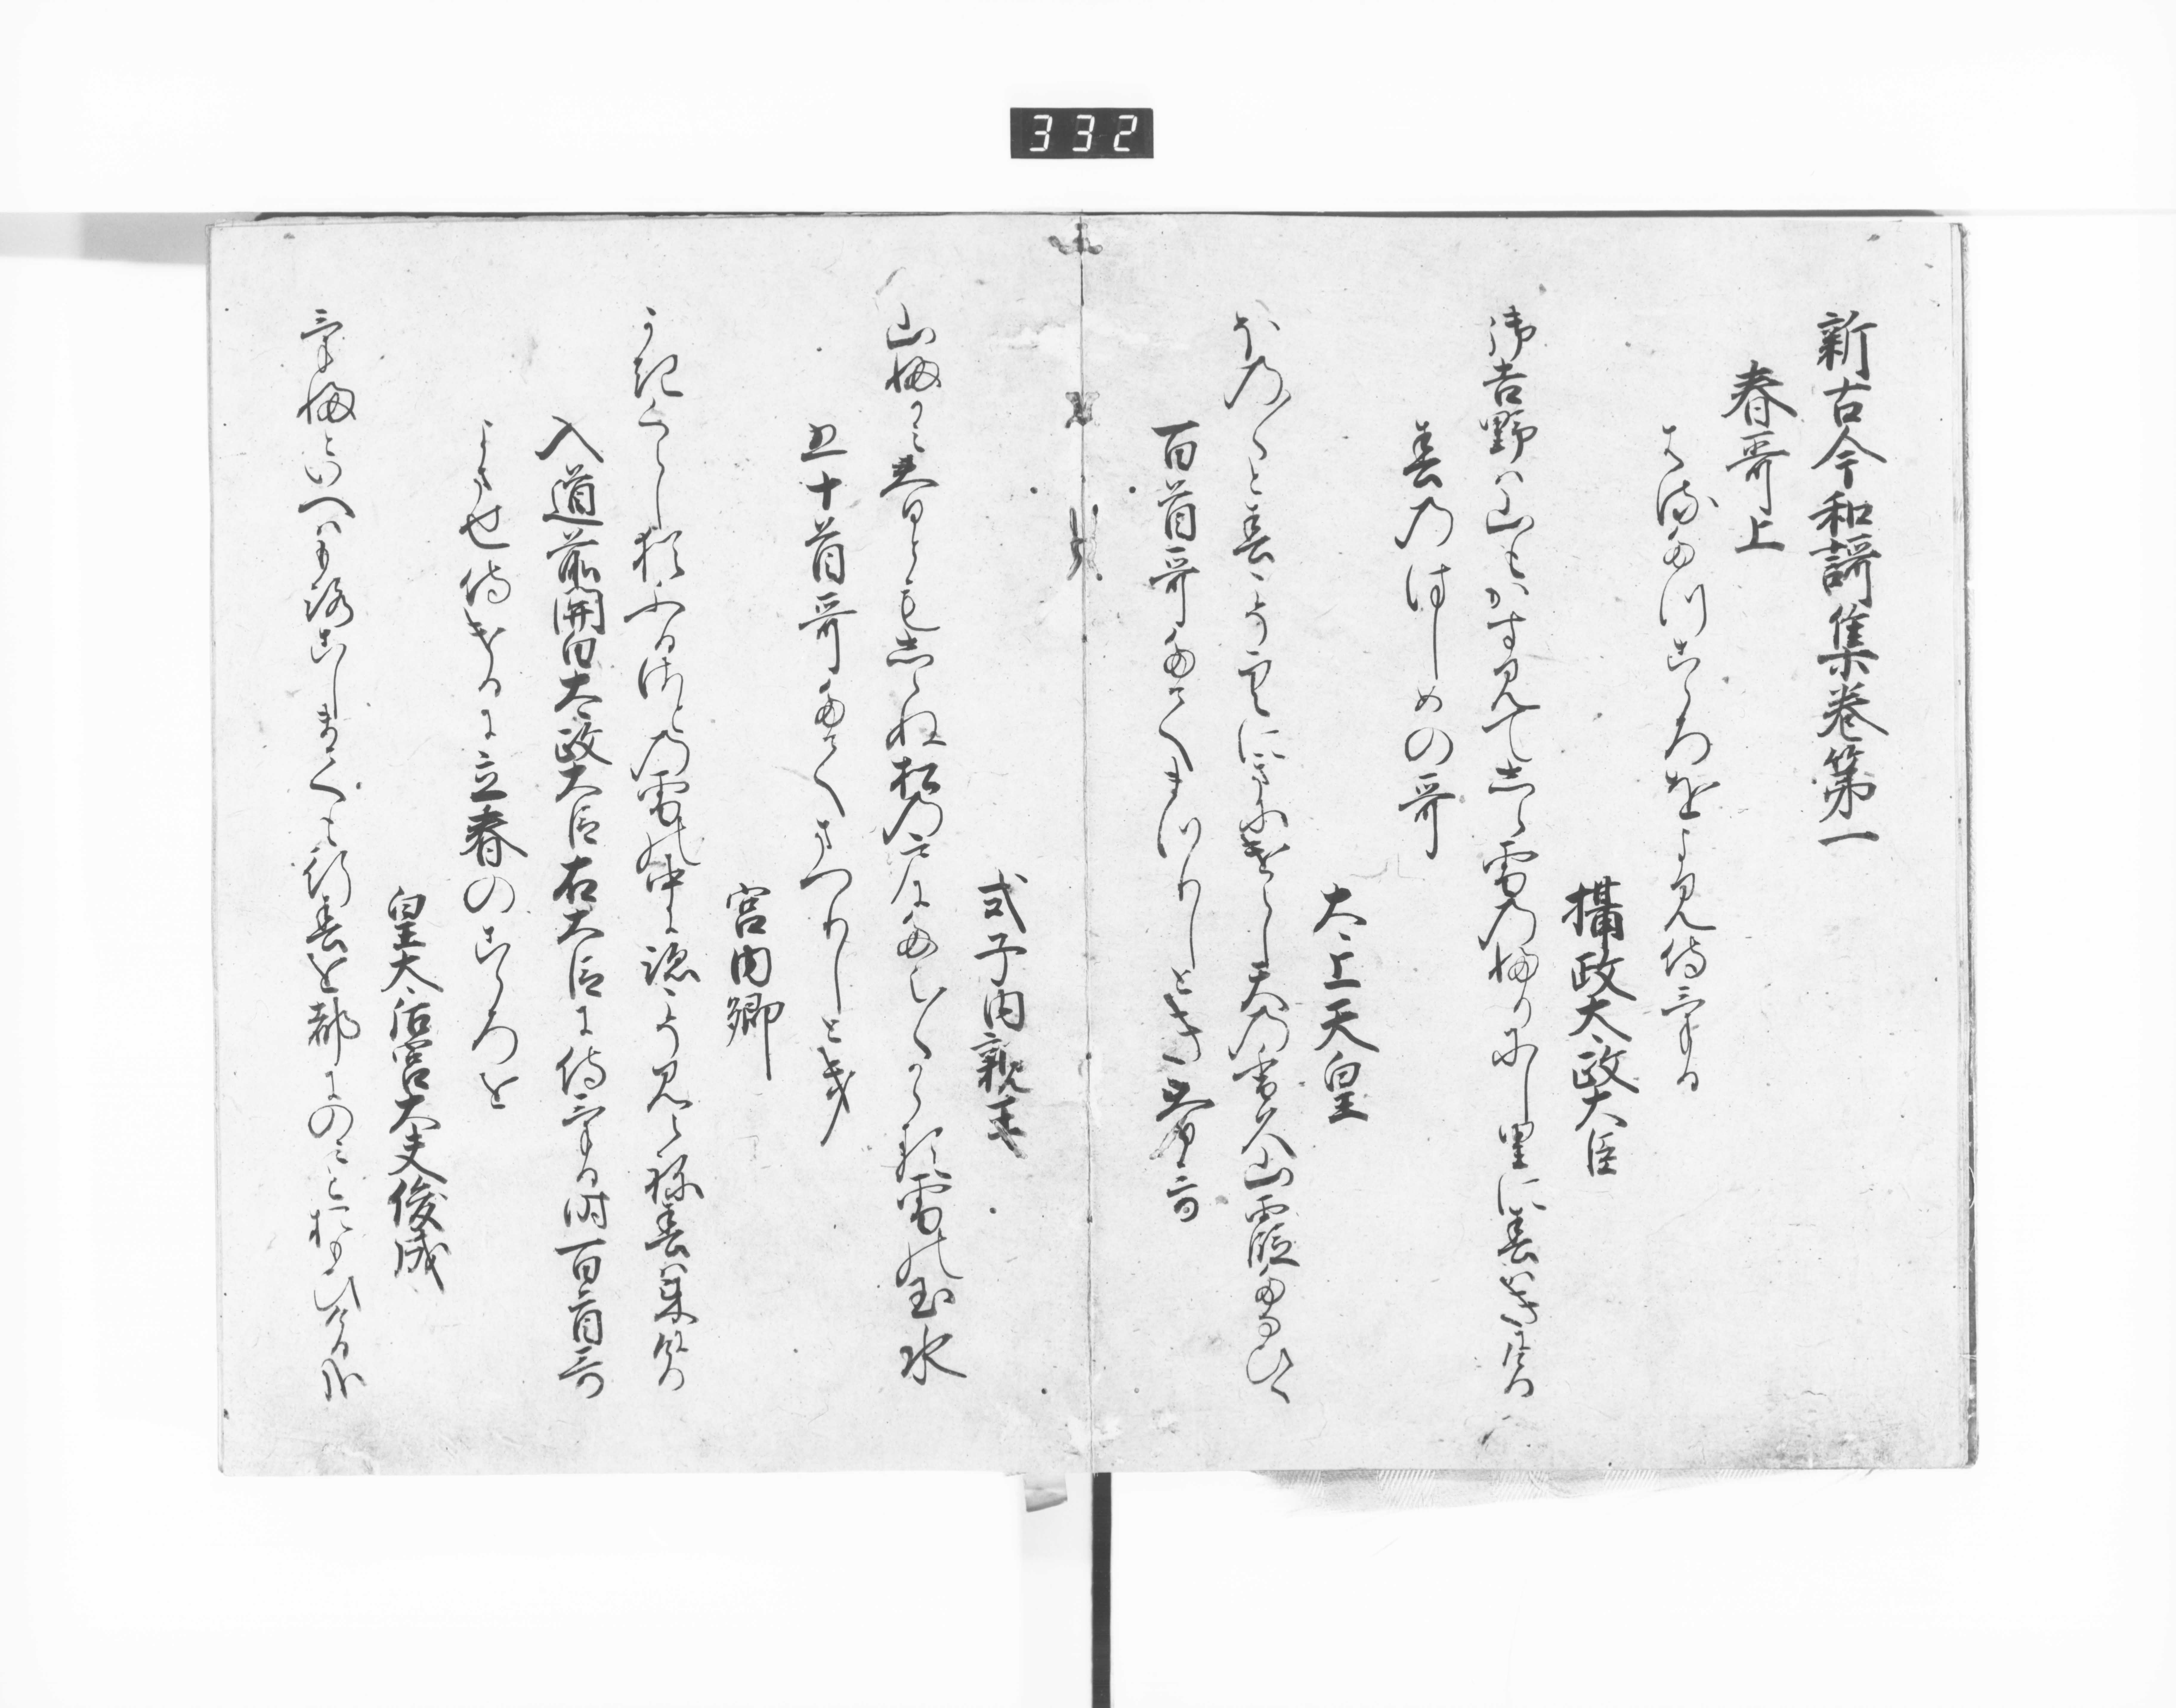 332
新古今和謌集巻第一
春哥上
はるたつこゝろをよみ侍ける
摂政太政大臣
み吉野は山もかすみて志ら雪のふりにし里に春はきにけり
春のはしめの哥
太上天皇
ほの／＼と春こそ空にきにけらし天のかく山霞たなひく
百首哥たてまつりしとき春哥
式子内親王
山ふかみ春ともしらぬ松の戸にたえ／＼かゝる雪の玉水
五十首哥たてまつりしとき
宮内卿
かきくらし猶ふるさとの雪の中に跡こそ見えね春は来にけり
入道前関白太政大臣右大臣に侍ける時百首哥
よませ侍けるに立春のこゝろを
皇太后宮大夫俊成
けふといへはもろこしまても行春を都にのみとおもひけるかな